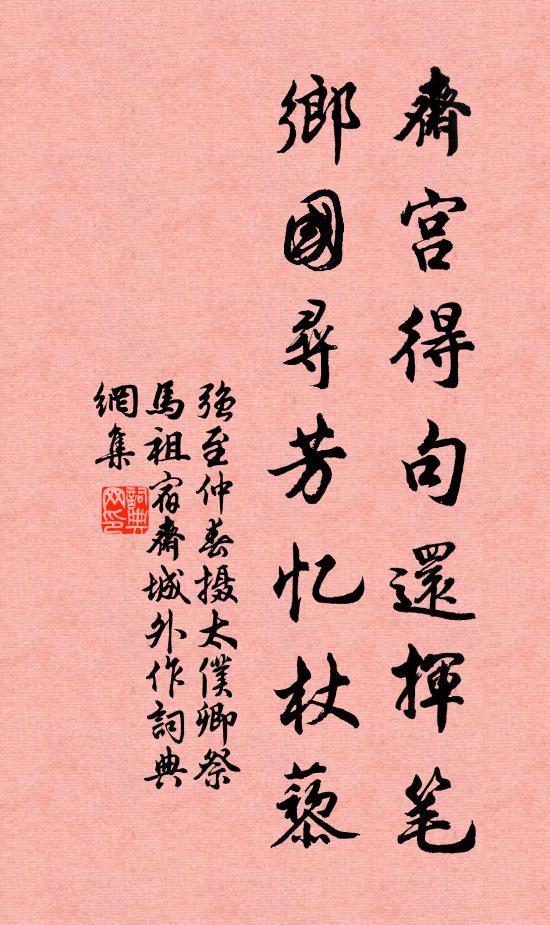 齋宮得句還揮笔
鄉國尋芳忆杖藜
强至仲春摄太僕卿祭
馬祖宿齋城外作詞典
網集
詞典
网印